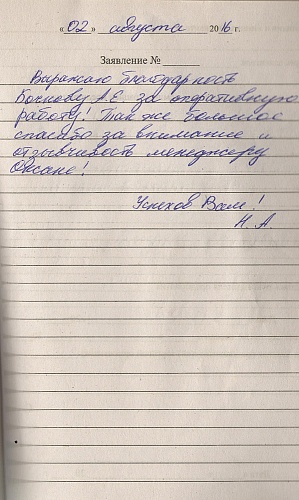 « 02 » августа 2016 г.
Заявление №
Выражаю благодарность
А.Е. за оперативную
работу! Так же большое
спасибо за внимание и
отзывчивость менеджеру
Оксане!
Успехов Вам!
Н. А.